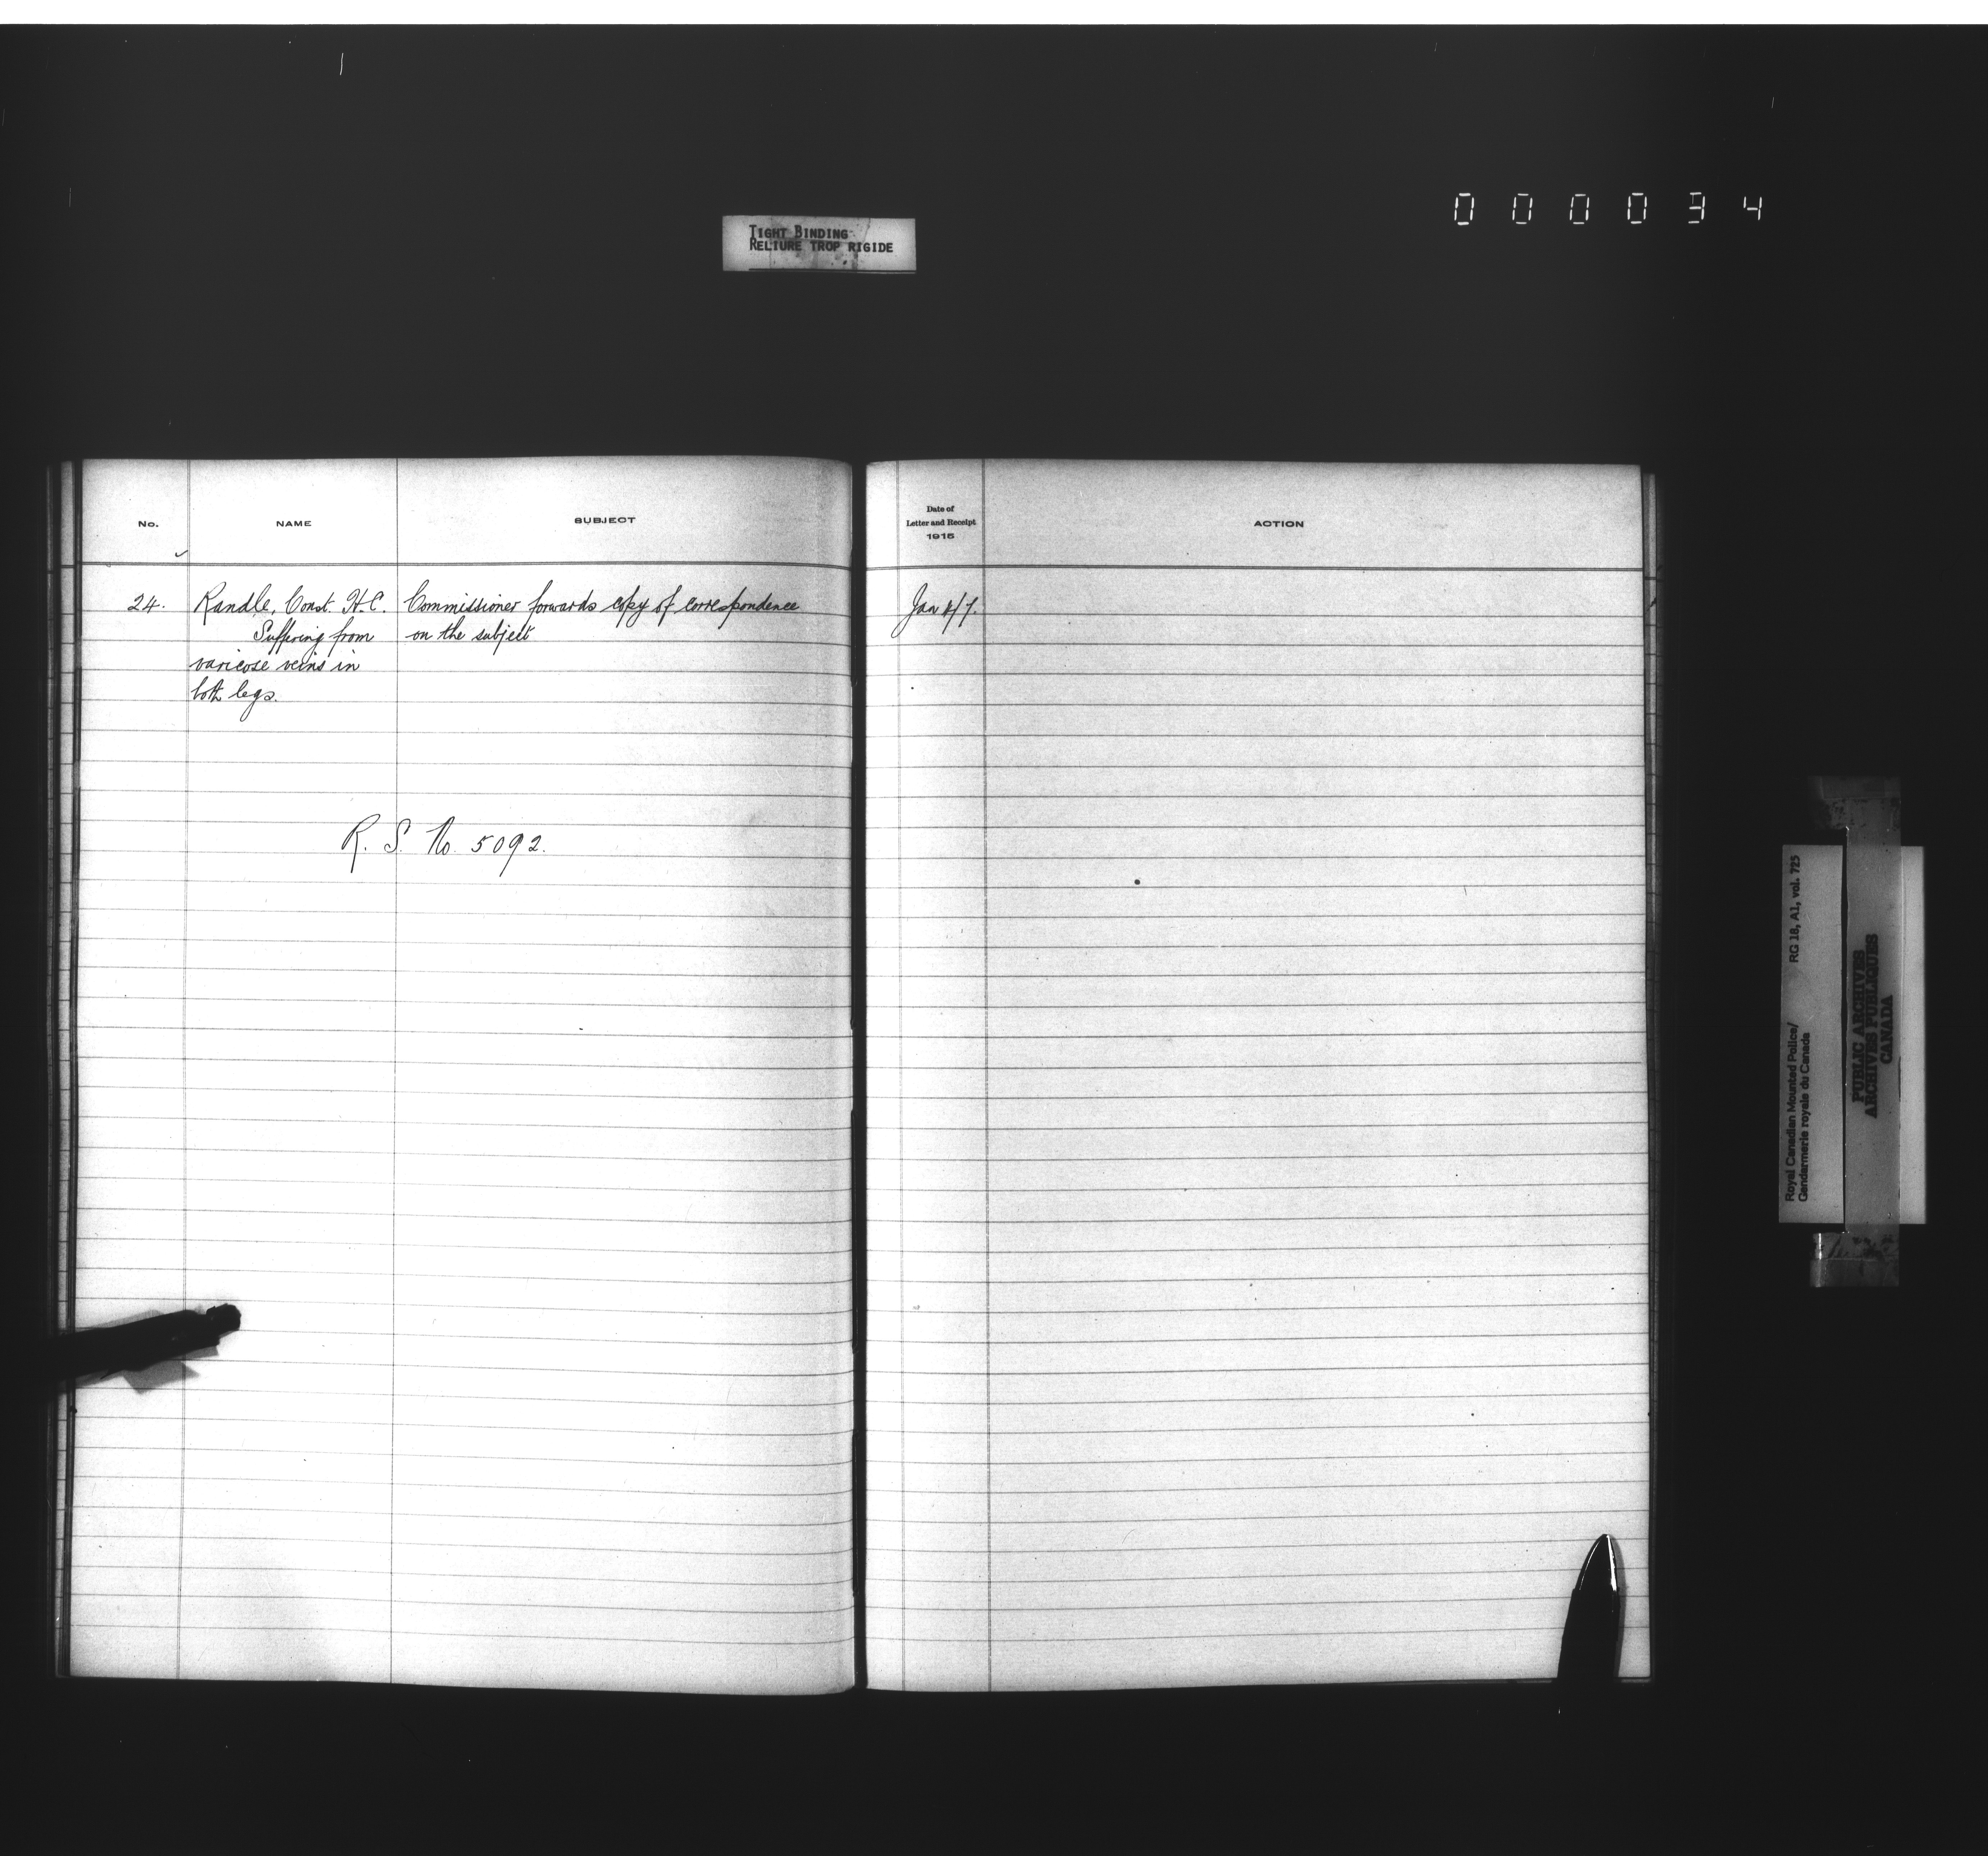 000034
TIGHT BINDING
RELIURE TROP RIGIDE
No. NAME SUBJECT
24. Randle, Const. H.C. Commissioner forwards copy of correspondence
Suffering from on the subject
varicose veins in
both legs.
R. S. No. 5092.
Date of
Letter and Receipt
1915
ACTION
Jan 4/7.
Royal Canadian Mounted Police/ RG 18, A1, vol. 725
Gendarmerie royale du Canada
PUBLIC ARCHIVES
ARCHIVES PUBLIQUES
CANADA